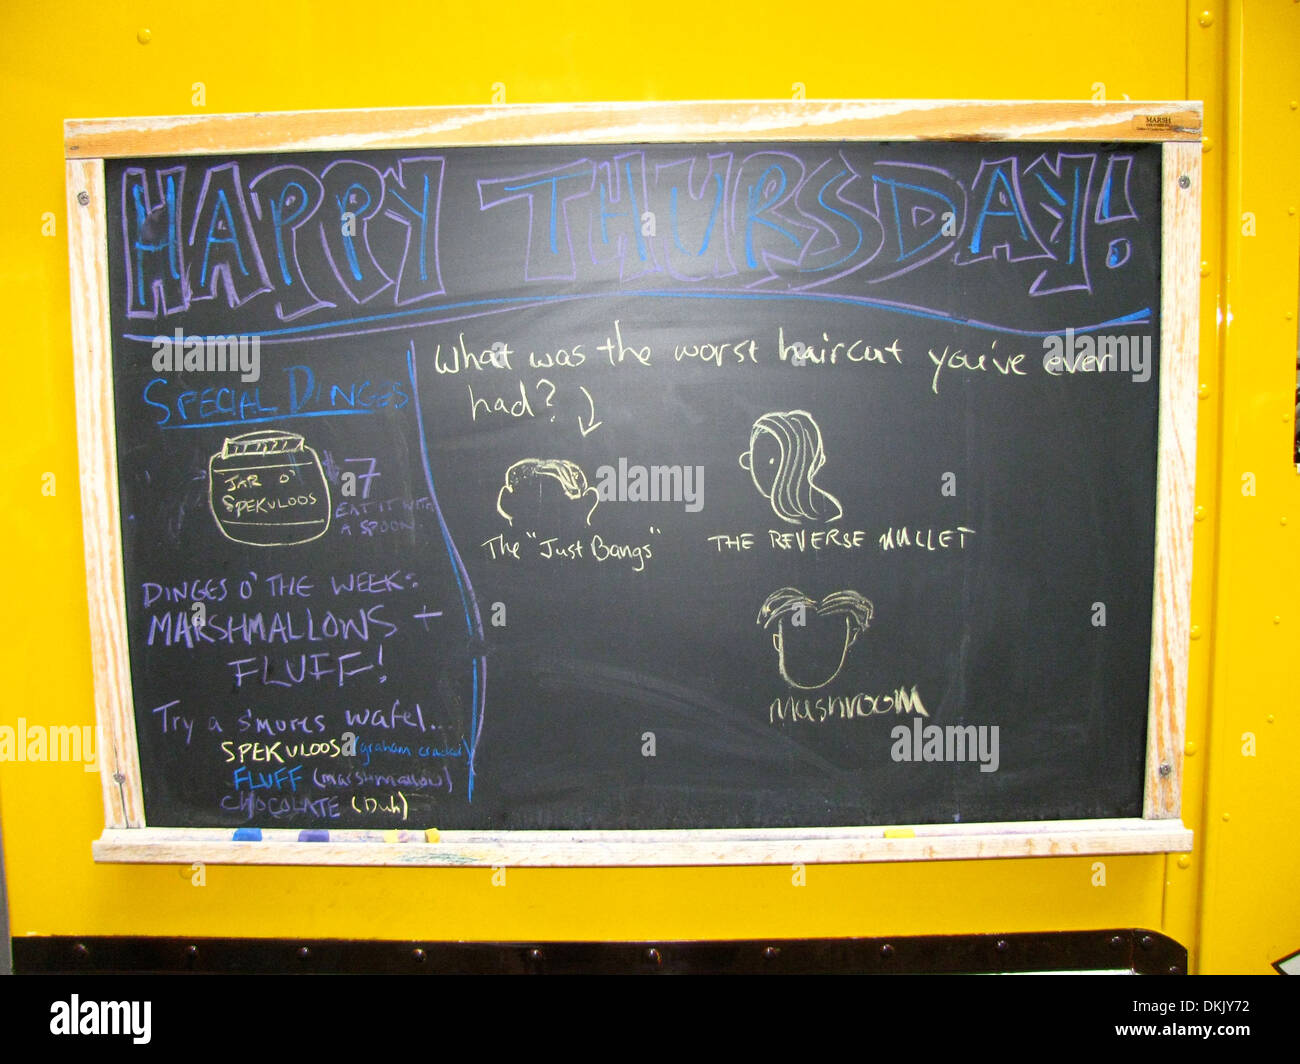 MARSH
HAPPY THURSDAY!
SPECIAL DINGES
JAR O'
SPEKULOOS
$7
EAT IT WITH
A SPOON.
DINGES O' THE WEEK:
MARSHMALLOWS +
FLUFF!
Try a s'mores wafel...
SPEKULOOS (graham cracker)
FLUFF (marshmallow)
CHOCOLATE (Duh)
What was the worst haircut you've ever
had?
The "Just Bangs"
THE REVERSE MULLET
MUSHROOM
alamy
alamy
Image ID: DKJY72
www.alamy.com